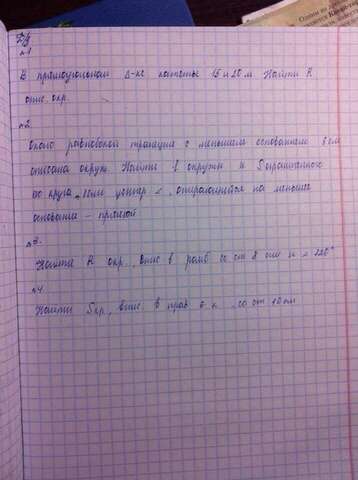 Д/з
№1
В прямоугольном Δ-ке катеты 15 и 20 м Найти R
опис. окр.
№2
Около равнобокой трапеции с меньшем основанием 8 см
описана окруж. Найти l окружн и S ограниченного
ею круга, если центр ∠, опирающийся на меньшее
основание – прямой
№3.
Найти R окр., впис в ромб со ст 8 см и ∠ 120°
№4
Найти Sкр., впис. в прав 6-к со ст 10 см